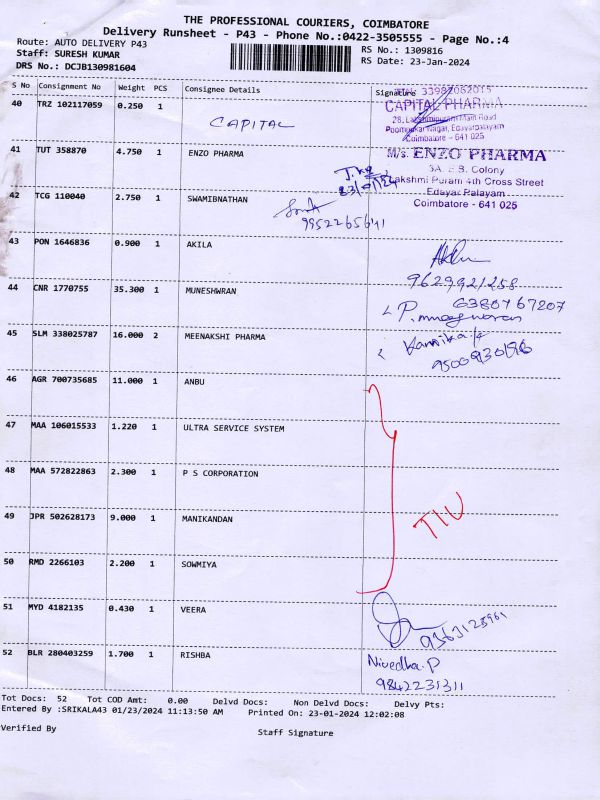 THE PROFESSIONAL COURIERS, COIMBATORE
Delivery Runsheet - P43 - Phone No.:0422-3505555 - Page No.:4
Route: AUTO DELIVERY P43
RS No.: 1309816
Staff: SURESH KUMAR
RS Date: 23-Jan-2024
DRS No.: DCJB130981604
S No Consignment No Weight PCS Consignee Details Signature
33982062015
40 TRZ 102117059 0.250 1 CAPITAL
CAPITAL PHARMA
28, Lakshmipuram Main Road
Poompukar Nagar, Edayarpalayam
Coimbatore - 641 025
41 TUT 358870 4.750 1 ENZO PHARMA
M/s. ENZO PHARMA
3A, E.B. Colony
Lakshmi Puram 4th Cross Street
Edayar Palayam
Coimbatore - 641 025
23/01/24
42 TCG 110040 2.750 1 SWAMIBNATHAN
9952265641
43 PON 1646836 0.900 1 AKILA
9629921258
44 CNR 1770755 35.300 1 MUNESHWRAN
6380767207
45 SLM 338025787 16.000 2 MEENAKSHI PHARMA
Kannika.k
9500930196
46 AGR 700735685 11.000 1 ANBU
47 MAA 106015533 1.220 1 ULTRA SERVICE SYSTEM
48 MAA 572822863 2.300 1 P S CORPORATION
49 JPR 502628173 9.000 1 MANIKANDAN
50 RMD 2266103 2.200 1 SOWMIYA
51 MYD 4182135 0.430 1 VEERA
9363125961
52 BLR 280403259 1.700 1 RISHBA
Nivedha.P
9842231311
Tot Docs: 52 Tot COD Amt: 0.00 Delvd Docs: Non Delvd Docs: Delvy Pts:
Entered By :SRIKALA43 01/23/2024 11:13:50 AM Printed On: 23-01-2024 12:02:08
Verified By
Staff Signature